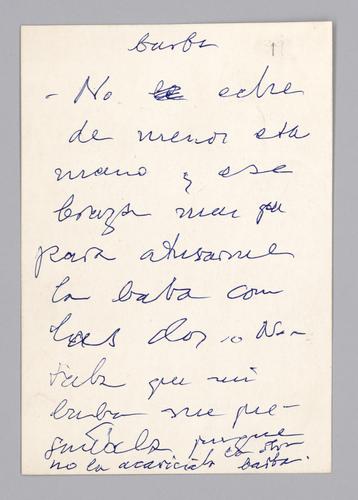 barba
- No eche
de menos esta
mano y ese
brazo mas que
para atusarme
la barba con
las dos. No
que mi
barba me pre-
guntaba, porque
no la acariciaba la otra
barba.